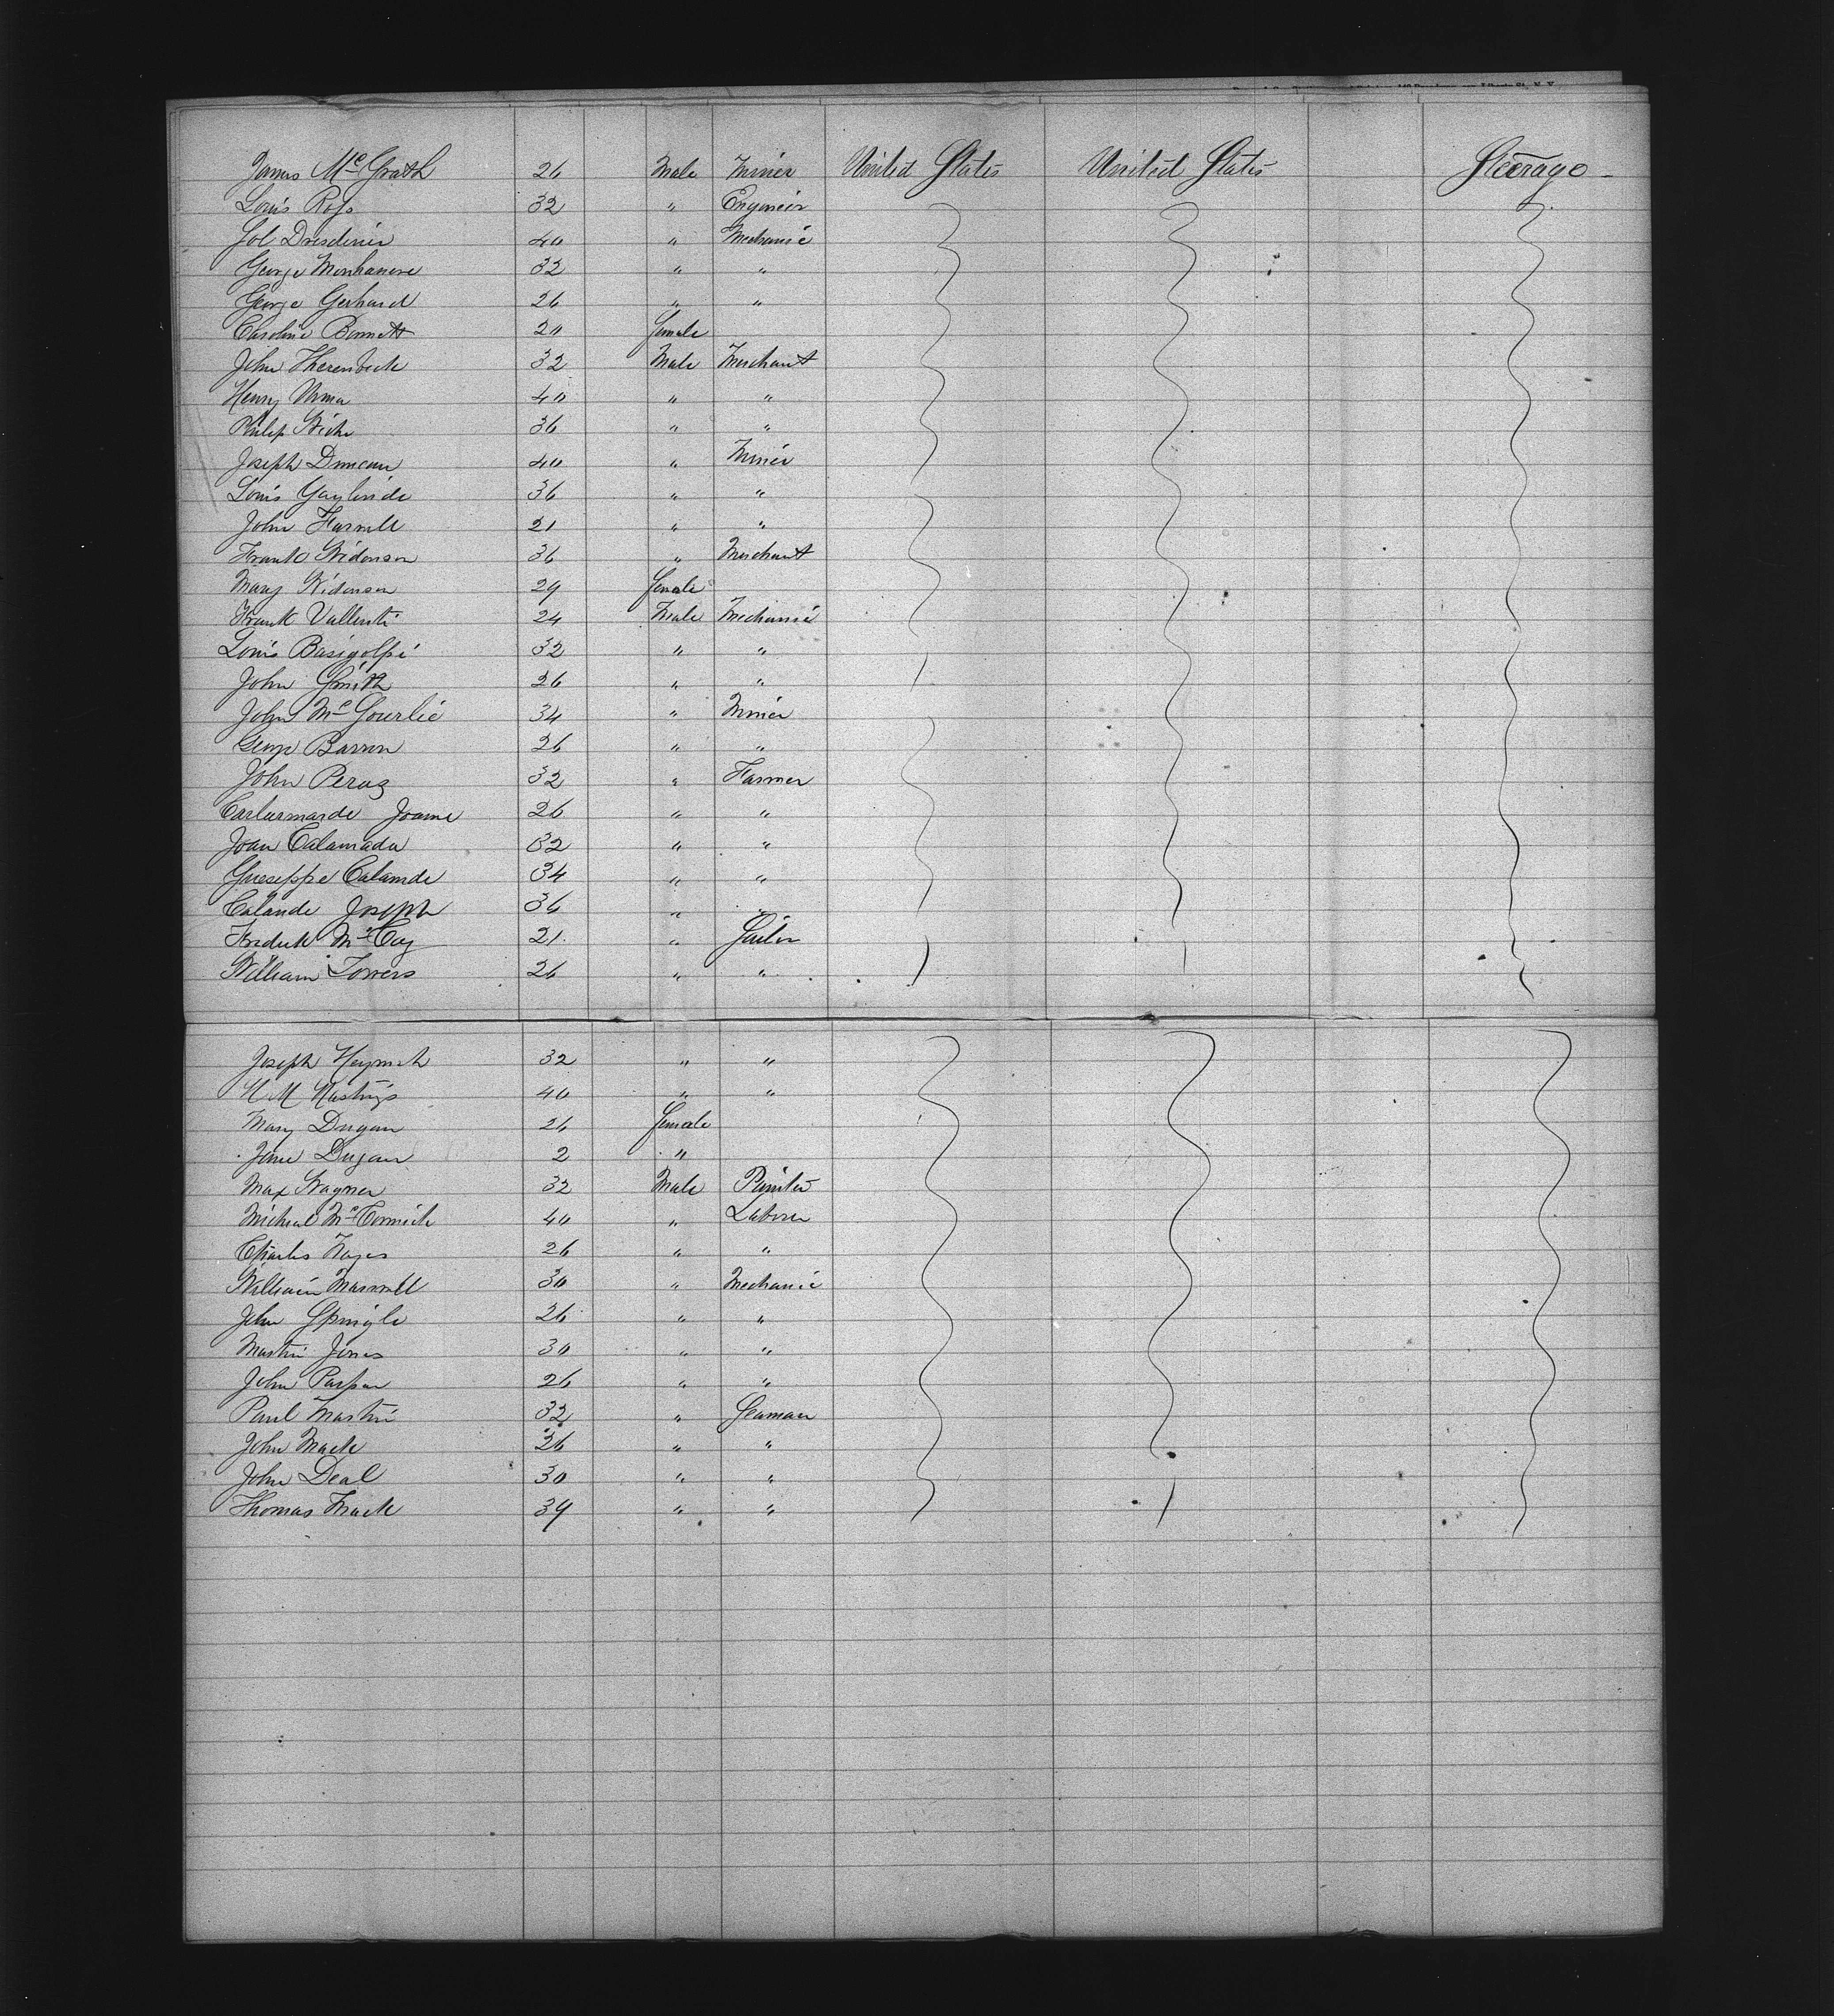 James McGrath 26 Male Miner United States United States Steerage
Louis Ross 32 " Engineer
Sol Dresdener 40 " Mechanic
George 32 " "
George Gerhard 26 " "
Caroline Bennett 20 female
John 32 Male Merchant
Henry 40 " "
Philip 36 " "
Joseph Duncan 40 " Miner
Louis 36 " "
John Farrell 21 " "
Frank Widenson 36 " Merchant
Mary Widenson 29 female
Frank Vallenti 24 Male Mechanic
Louis Basigolpi 32 " "
John Smith 26 " "
John McGourlie 34 " Miner
George Barron 26 " "
John Peraz 32 " Farmer
26 " "
Joan Calamada 32 " "
Gueseppe Calamde 34 " "
Calande Joseph 36 " "
Fredick McCoy 21 " Sailor
William Towers 26 " "
Joseph 32 " "
H M Hastings 40 " "
Mary Dugan 26 female
Jane Dugan 2 "
Max Wagner 32 Male Painter
Micheal McCormick 40 " Laborer
Charles 26 " "
William Maxwell 30 " Mechanic
John Springle 26 " "
Martin Jones 30 " "
John 26 " "
Paul Martin 32 " Seaman
John Mack 26 " "
John Deal 30 " "
Thomas Mack 39 " "